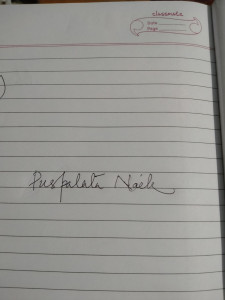 classmate
Date
Page
Puspalata Naik